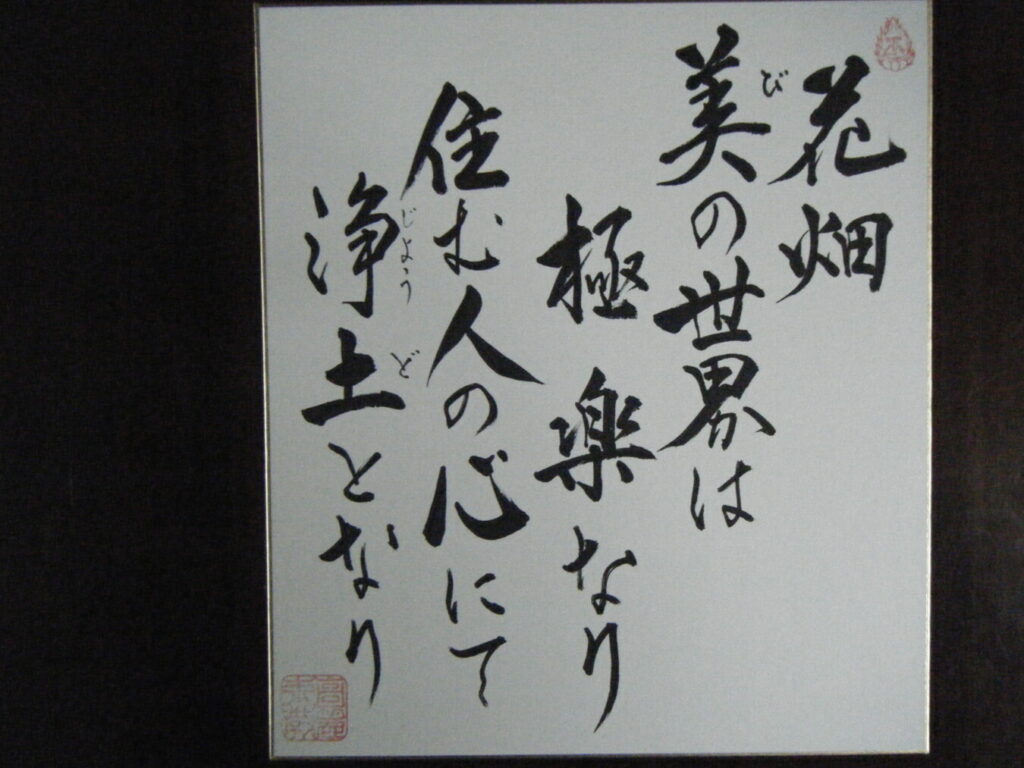 花畑
美の世界は
び
極楽なり
住む人の心にて
浄土となり
じょうど